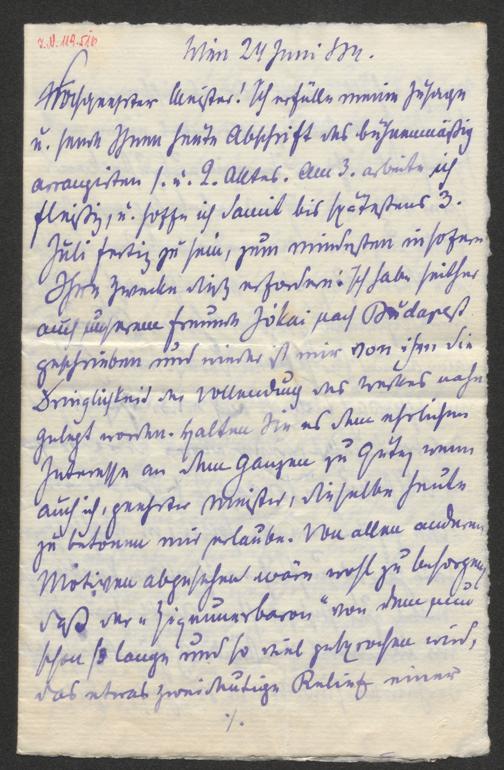 I.N. 119.510
Wien 24 Juni 884.
Hochgeehrter Meister! Ich erfülle meine Zusage
u. sende Ihnen heute Abschrift des bühnenmäßig
arrangirten 1. u. 2. Aktes. Am 3. arbeite ich
fleißig, u. hoffe ich damit bis spätestens 3.
Juli fertig zu sein, zum mindesten insofern
Ihre Zwecke dieß erfordern! Ich habe seither
auch unserem Freunde Jókai nach Budapest
geschrieben und wieder ist mir von ihm die
Dringlichkeit der Vollendung des Werkes nahe
gelegt worden. Halten Sie es dem ehrlichen
Interesse an dem Ganzen zu Gute, wenn
auch ich, geehrter Meister, dieselbe heute
zu betonen mir erlaube. Von allen anderen
Motiven abgesehen wäre wohl zu besorgen,
daß der „Zigeunerbaron“ von dem nun
schon so lange und so viel gesprochen wird,
das etwas zweideutige Relief einer
./.